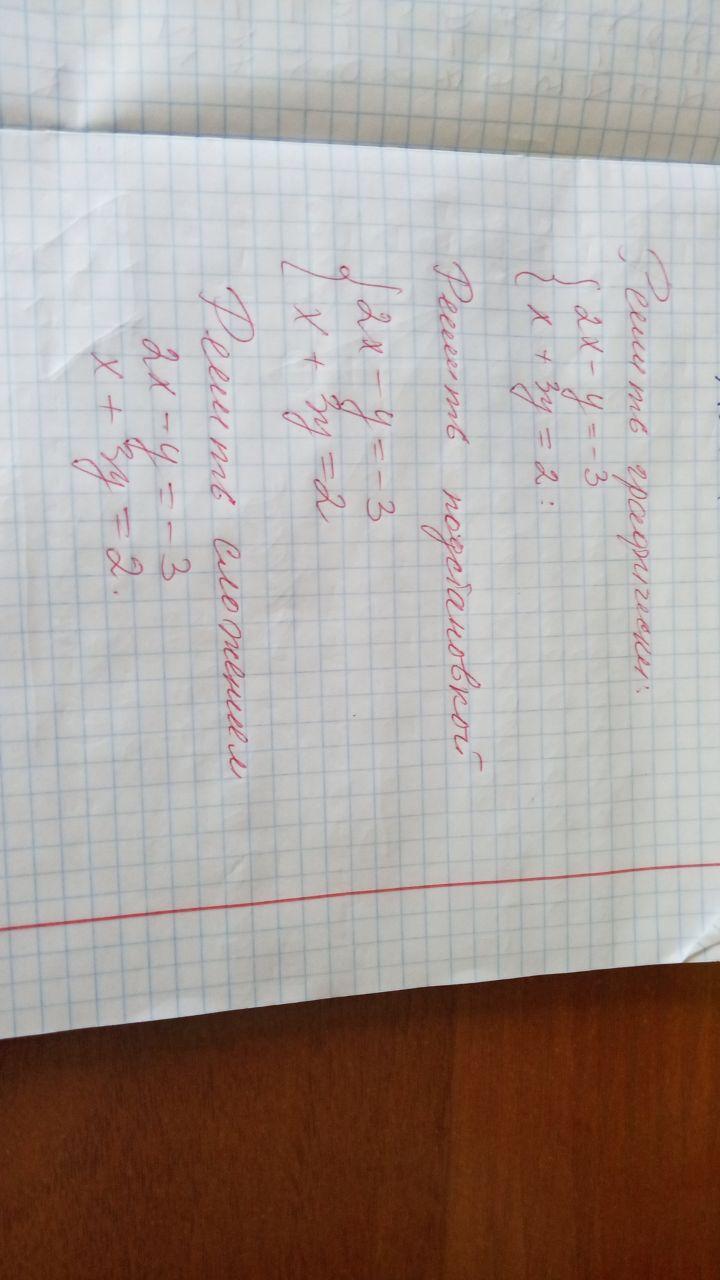 Решить графически:
{ 2x - y = -3
x + 3y = 2:
Решить подстановкой
{ 2x - y = -3
x + 3y = 2
Решить сложением
2x - y = -3
x + 3y = 2.